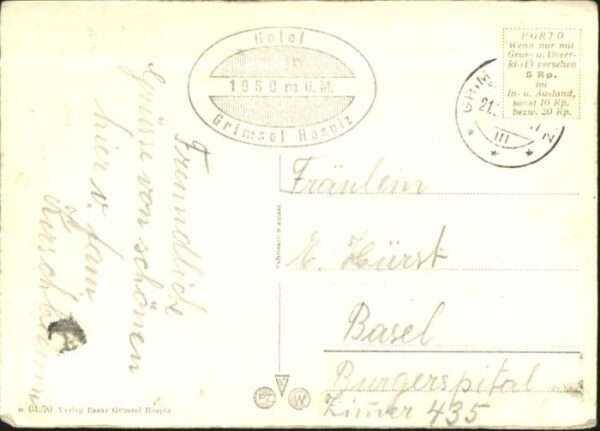 Hotel
1960 m ü. M.
Grimsel Hospiz
PORTO
Wenn nur mit
Gruss- u. Unter-
versehen
5 Rp.
im
In- u. Ausland,
sonst 10 Rp.
bezw. 20 Rp.
21.
III
Freundliche
Grüsse von schönen
hier v. fam
Fräulein
E. Hürst
Basel
Burgerspital
Zimmer 435
Verlag Grimsel Hospiz